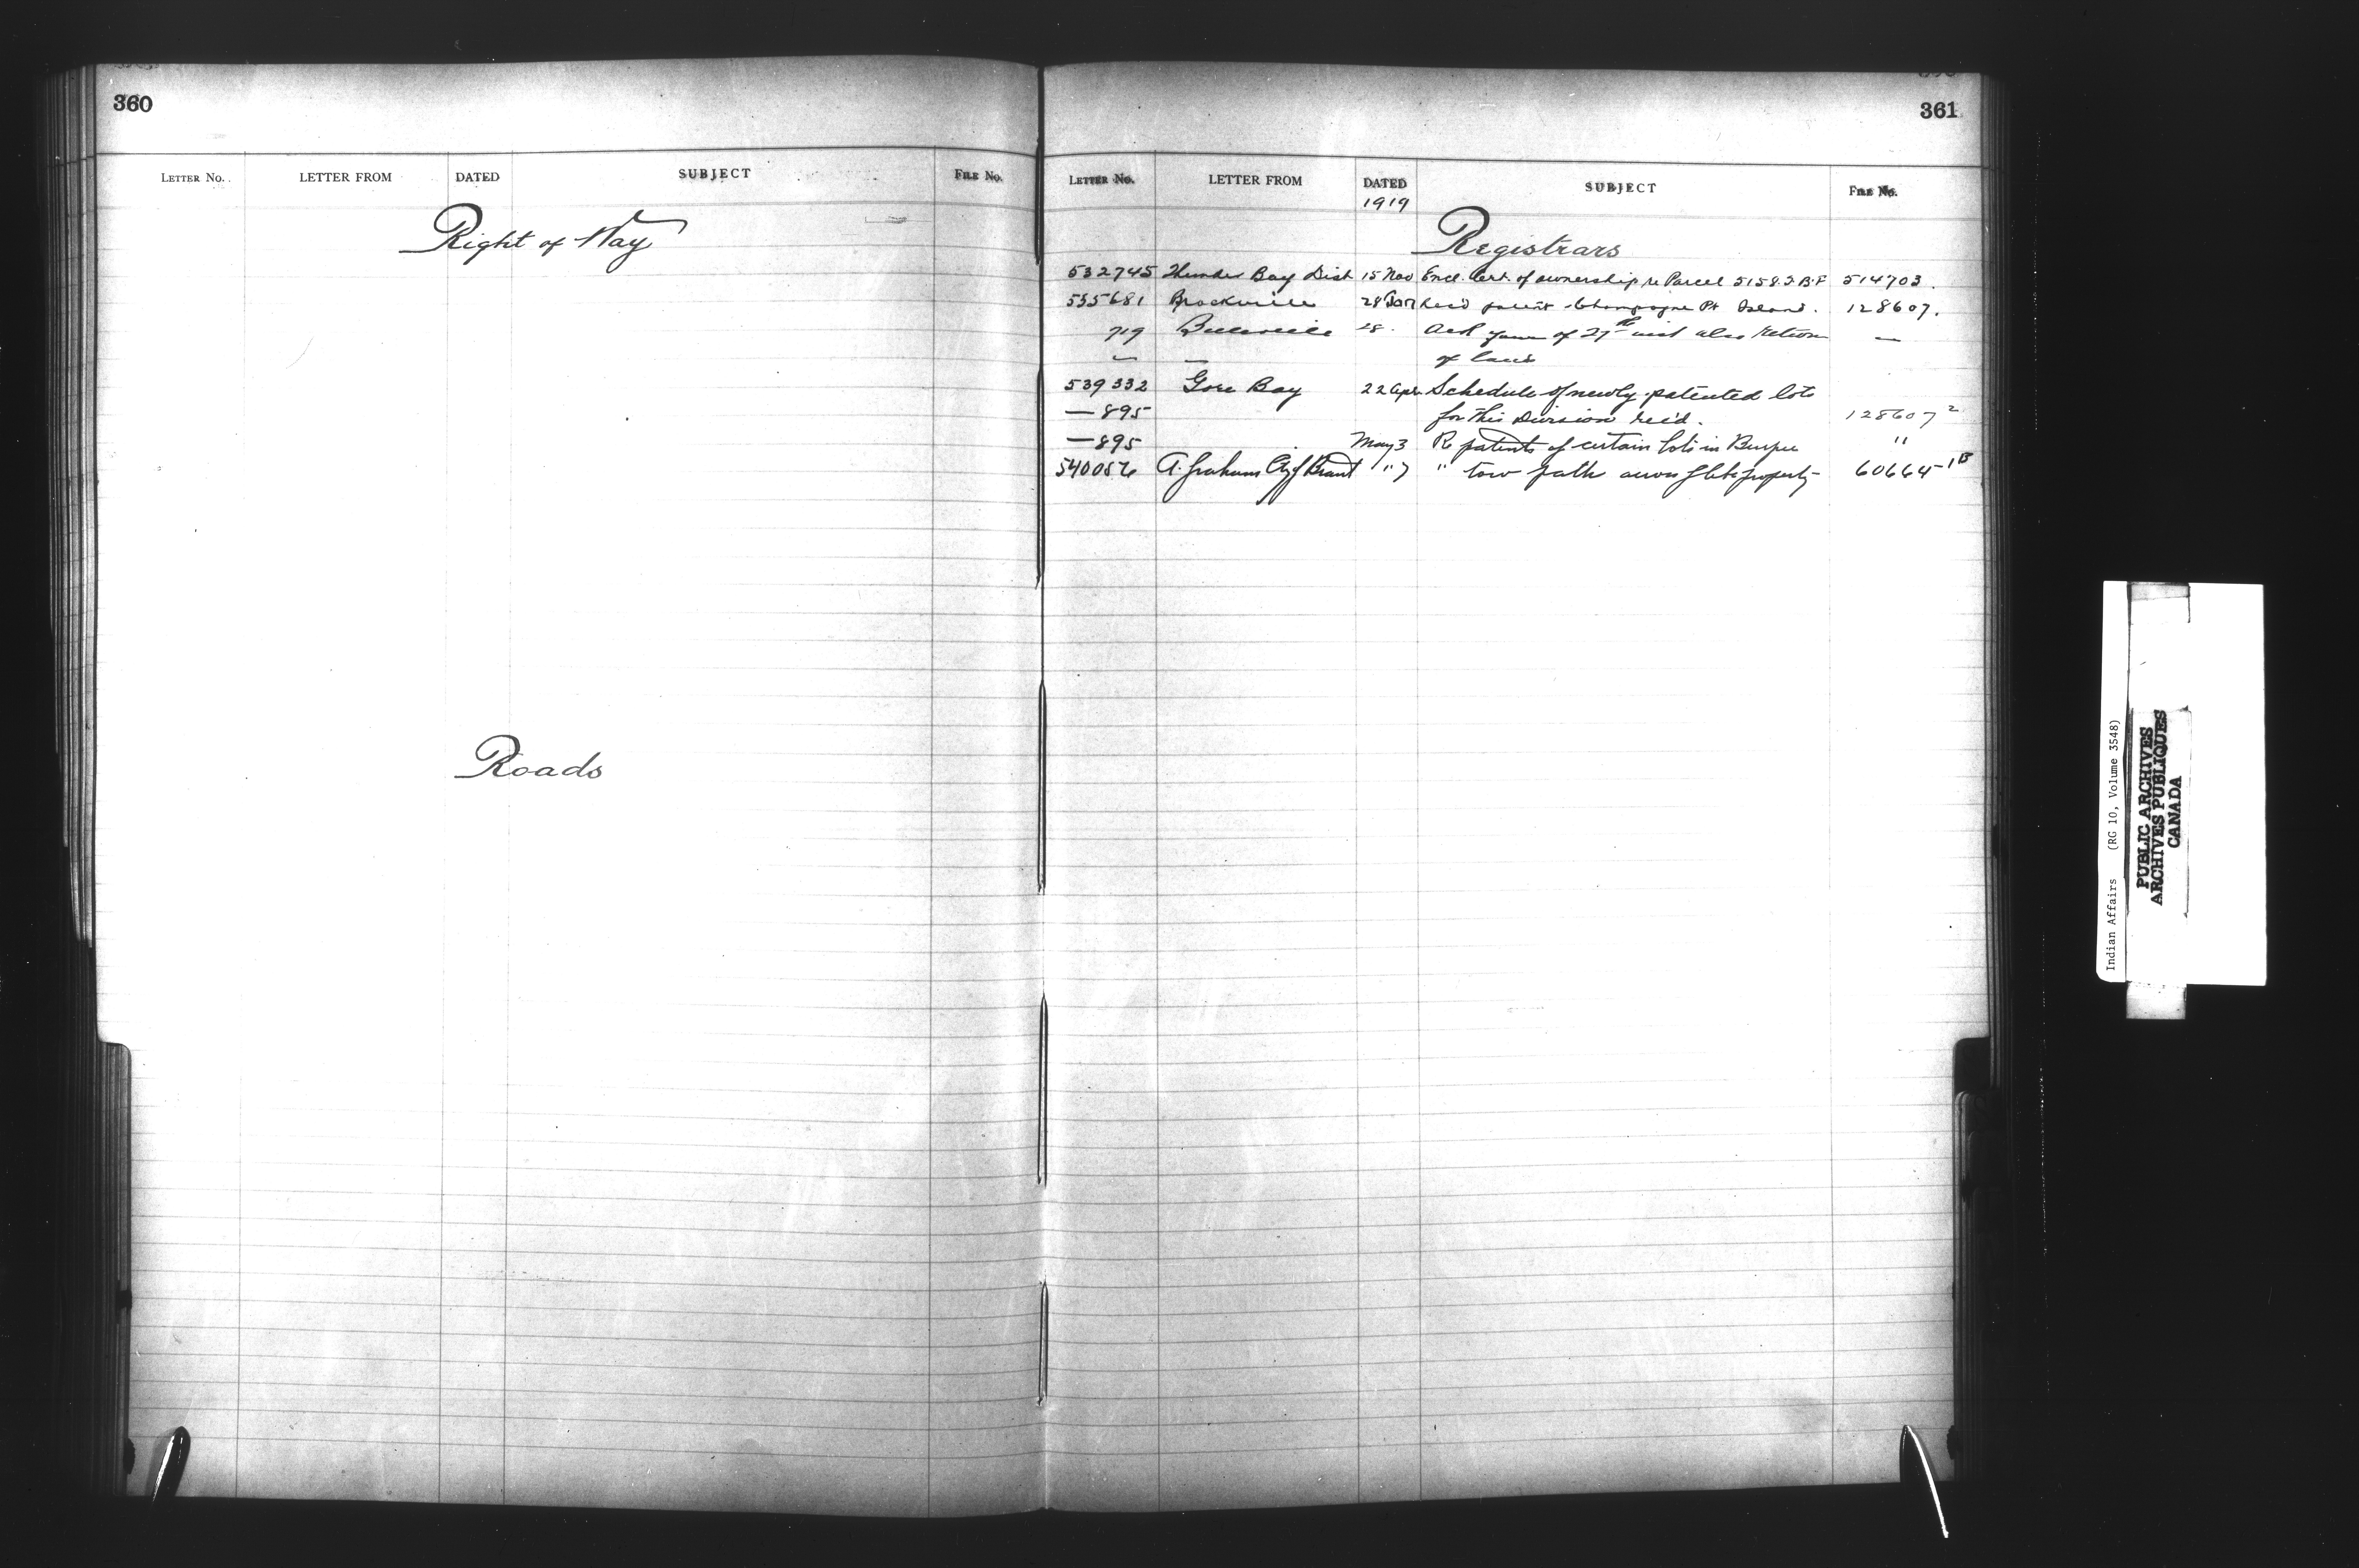 360
LETTER NO. LETTER FROM DATED SUBJECT FILE NO.
Right of Way
Roads
361
LETTER NO. LETTER FROM DATED SUBJECT FILE NO.
1919
Registrars
532745 Thunder Bay Dist 15 Nov Encl. Cert. of ownership re Parcel 5158 T.B.F 514703.
535681 Brockville 28 Jan Rec'd patent Champagne Pt Island. 128607.
719 Belleville 28. Ack of 27th inst also return —
of land
539332 Gore Bay 22 Apr. Schedule of newly patented lots
— 895 for this Division rec'd. 128607 2
— 895 May 3 Re patents of certain lots in Burpee "
540056 A. Graham Cty of Brant " 7 " tow path across property 60664-1B
Indian Affairs (RG 10, Volume 3548)
PUBLIC ARCHIVES
ARCHIVES PUBLIQUES
CANADA